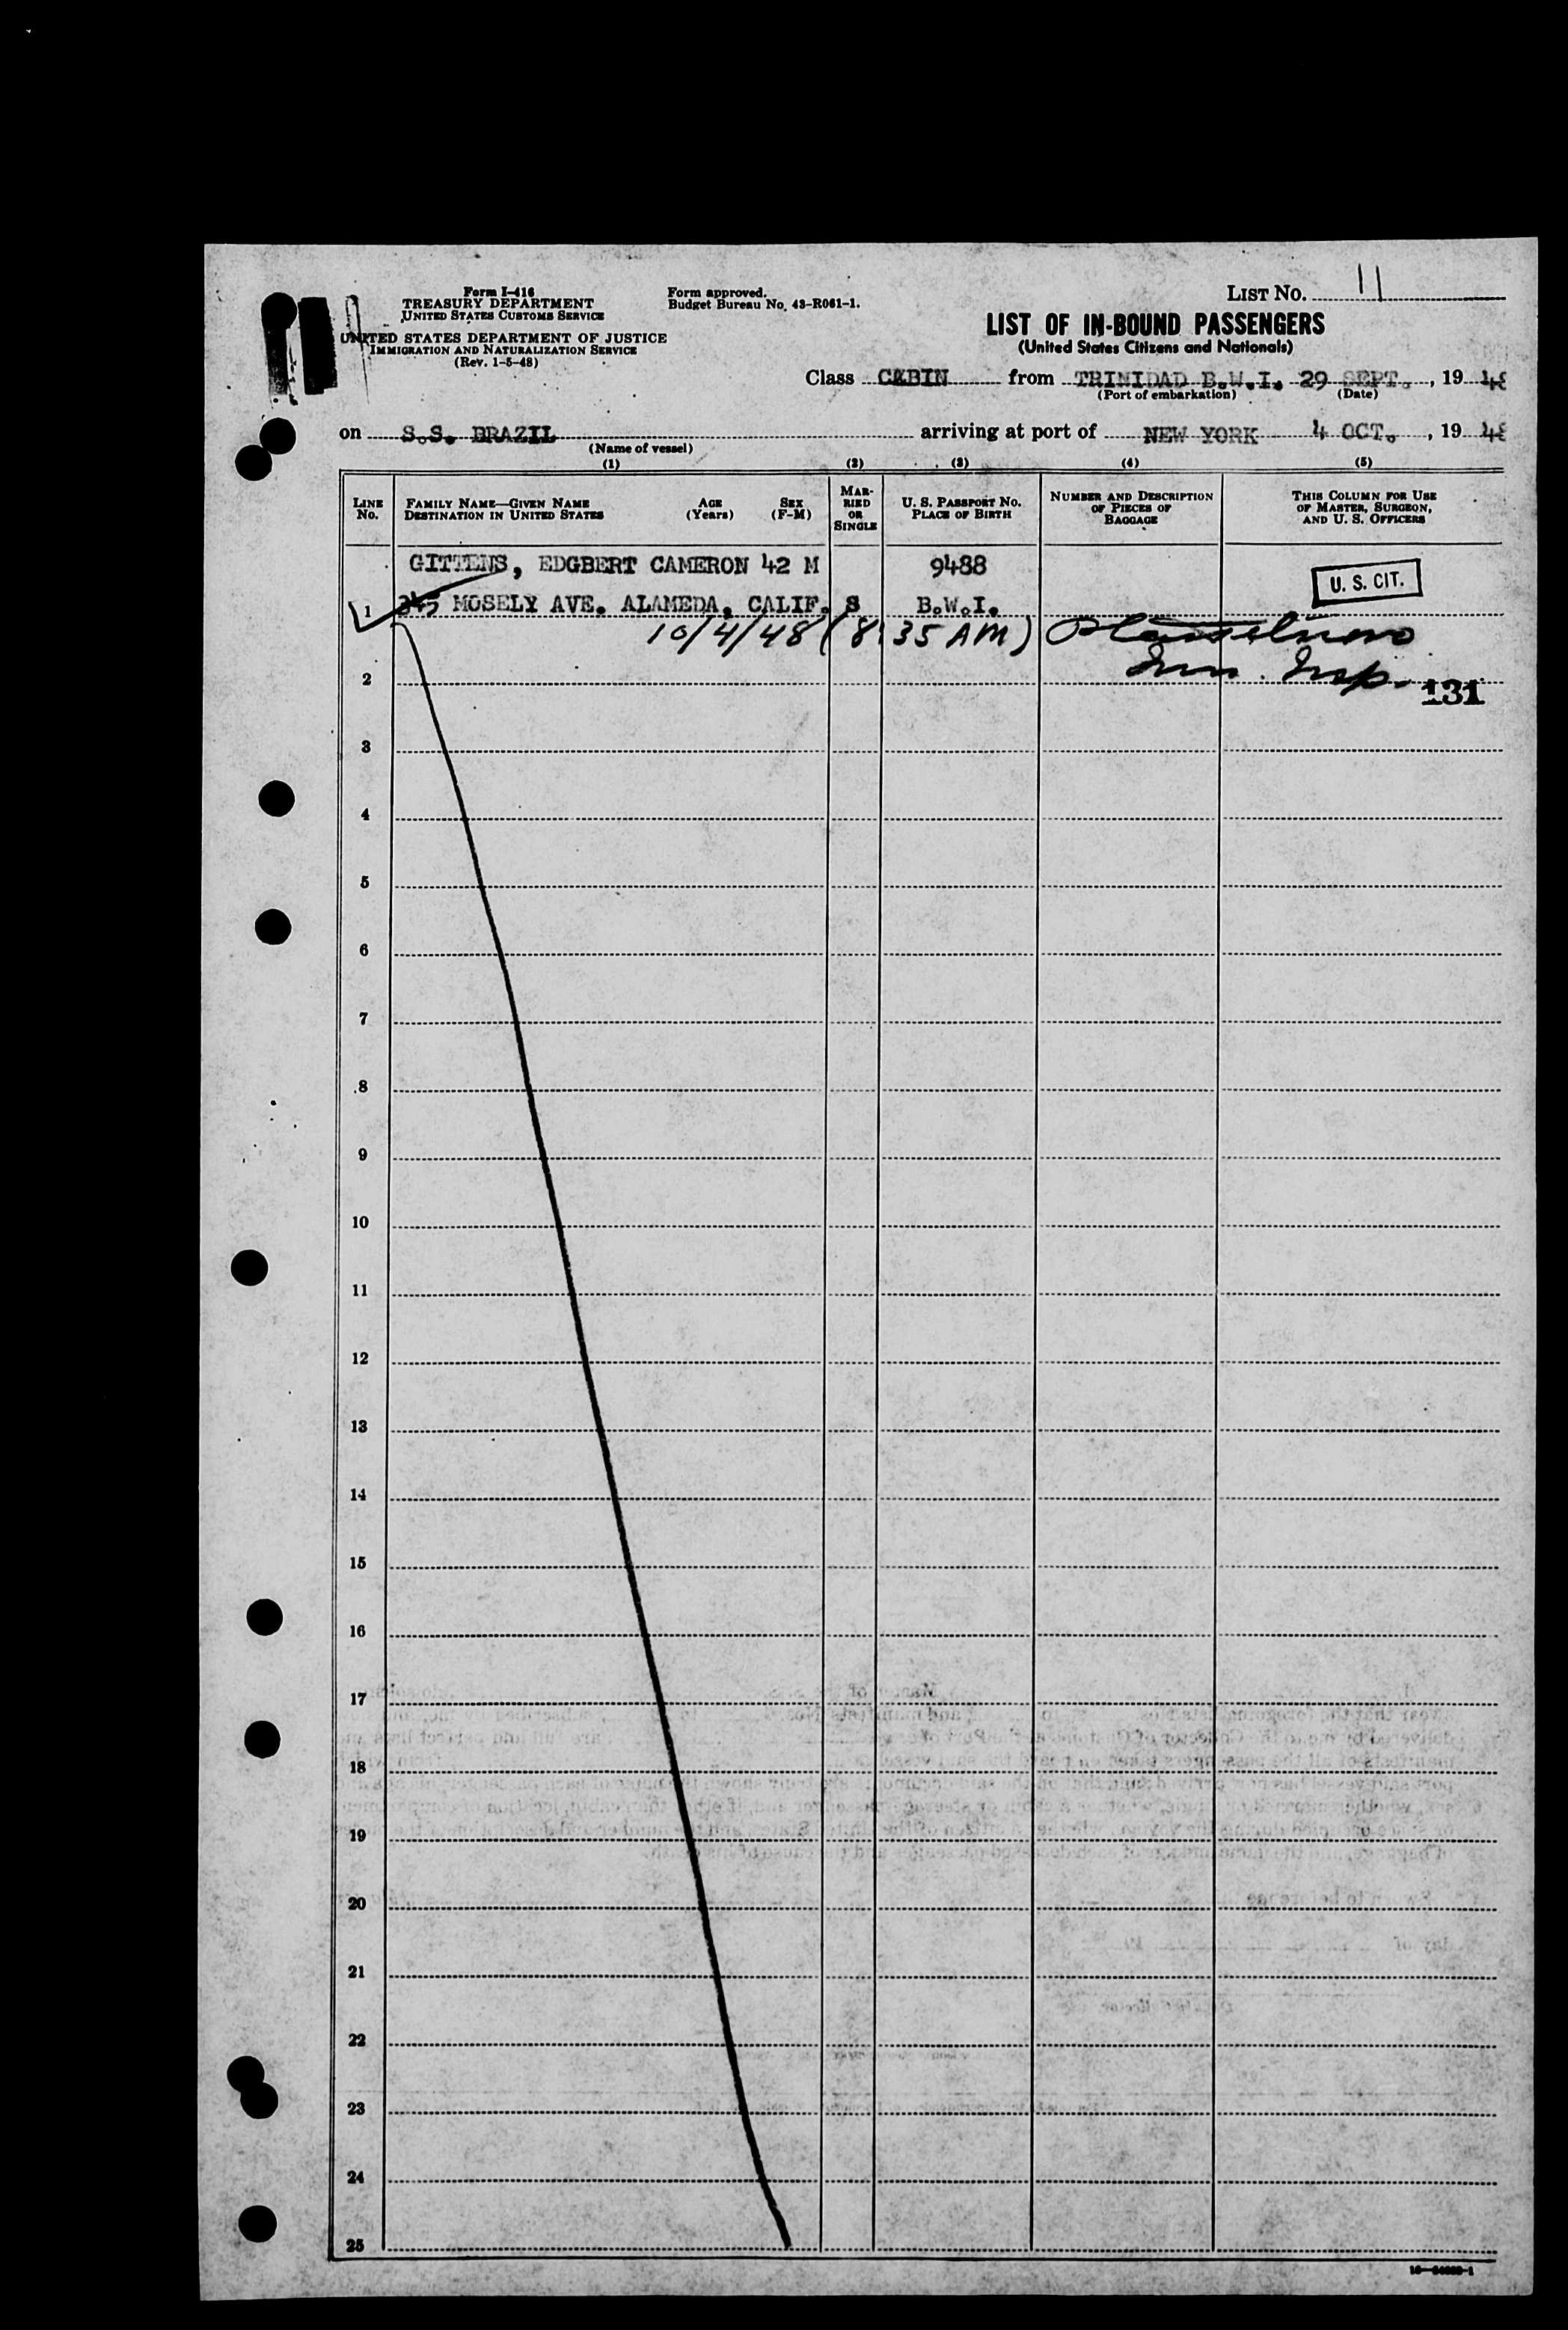 Form I-416
TREASURY DEPARTMENT
UNITED STATES CUSTOMS SERVICE
UNITED STATES DEPARTMENT OF JUSTICE
IMMIGRATION AND NATURALIZATION SERVICE
(Rev. 1-5-48)
Form approved.
Budget Bureau No. 43-R061-1.
LIST NO. 11
LIST OF IN-BOUND PASSENGERS
(United States Citizens and Nationals)
Class CABIN from TRINIDAD B.W.I. 29 SEPT., 19 48
(Port of embarkation) (Date)
on S.S. BRAZIL arriving at port of NEW YORK 4 OCT., 19 48
(Name of vessel)
(1) (2) (3) (4) (5)
LINE NO.
FAMILY NAME—GIVEN NAME AGE SEX
DESTINATION IN UNITED STATES (Years) (F-M)
MARRIED OR SINGLE
U. S. PASSPORT NO.
PLACE OF BIRTH
NUMBER AND DESCRIPTION
OF PIECES OF
BAGGAGE
THIS COLUMN FOR USE
OF MASTER, SURGEON,
AND U. S. OFFICERS
GITTENS, EDGBERT CAMERON 42 M 9488
U. S. CIT.
1 345 MOSELY AVE. ALAMEDA, CALIF. S B.W.I.
10/4/48 (8:35 AM)
Imm. Insp.
2
131
3
4
5
6
7
8
9
10
11
12
13
14
15
16
17
18
19
20
21
22
23
24
25